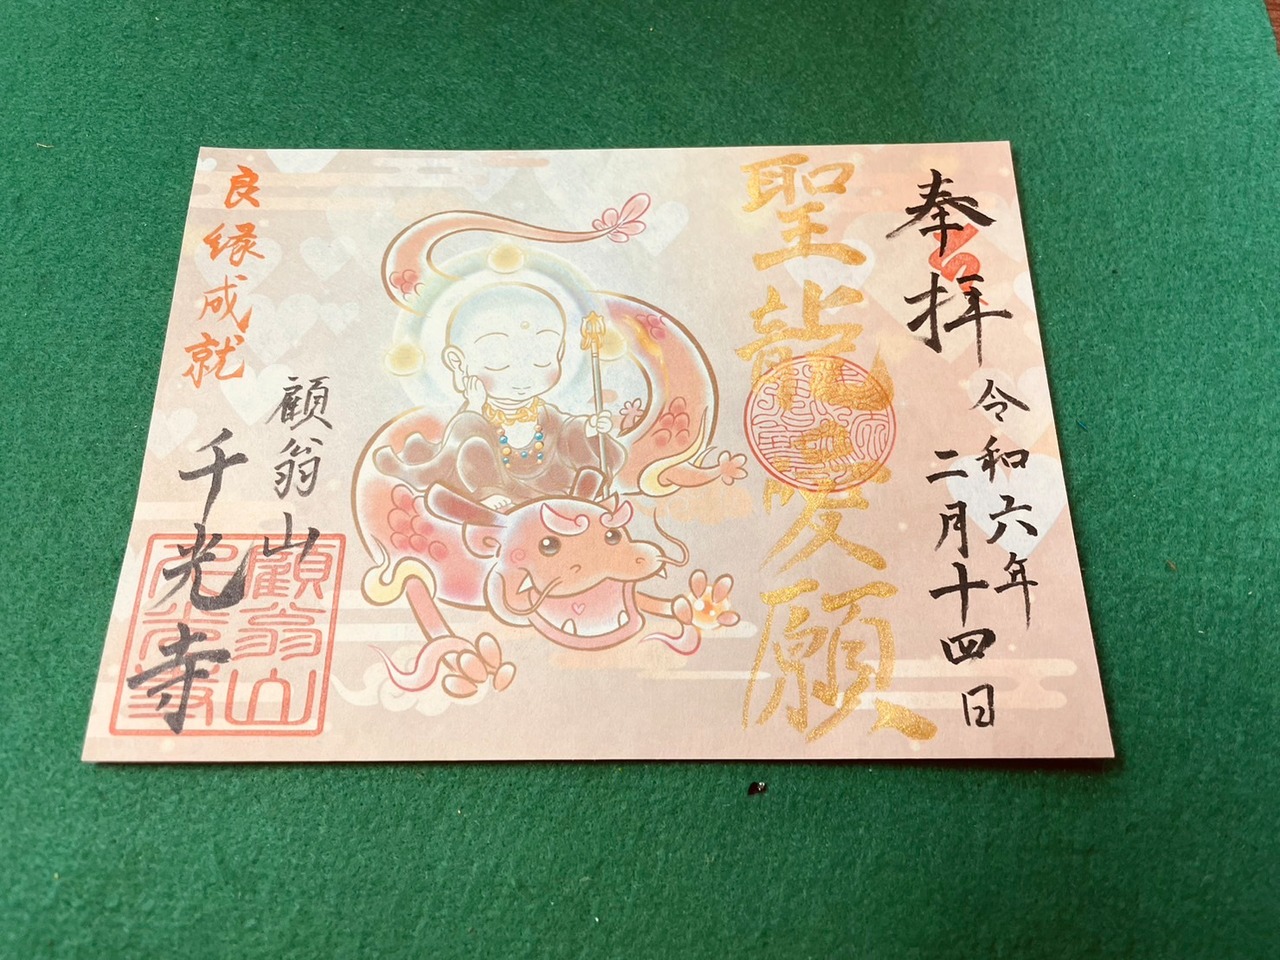 奉拝
令和六年
二月十四日
聖龍愛願
顧翁山
千光寺
良縁成就
顧翁山